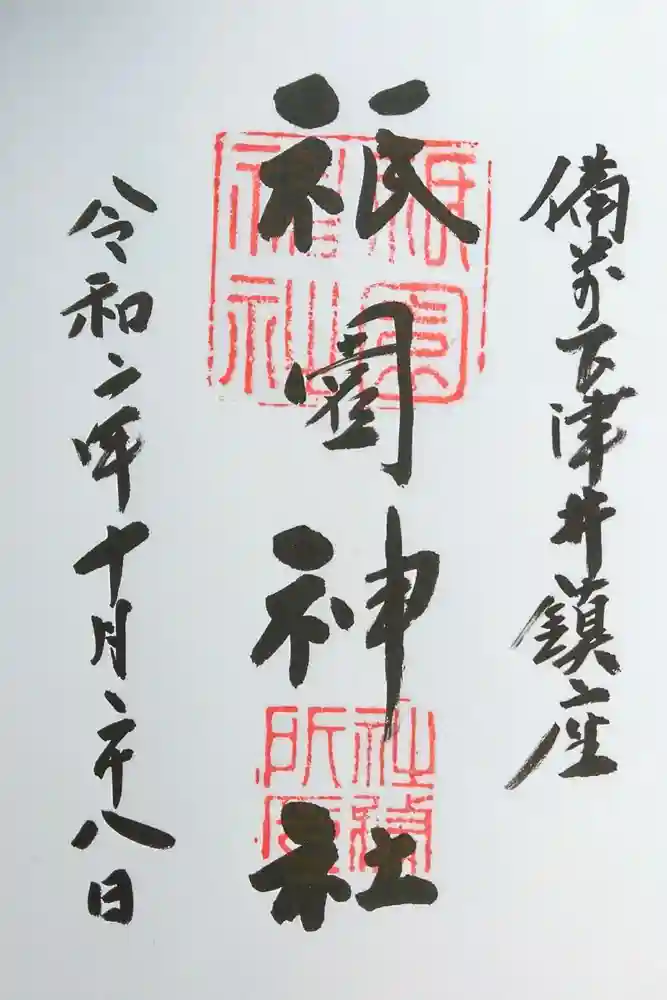 備前下津井鎮座
祇園神社
令和二年十月二十八日
祇園
神社
社務
所